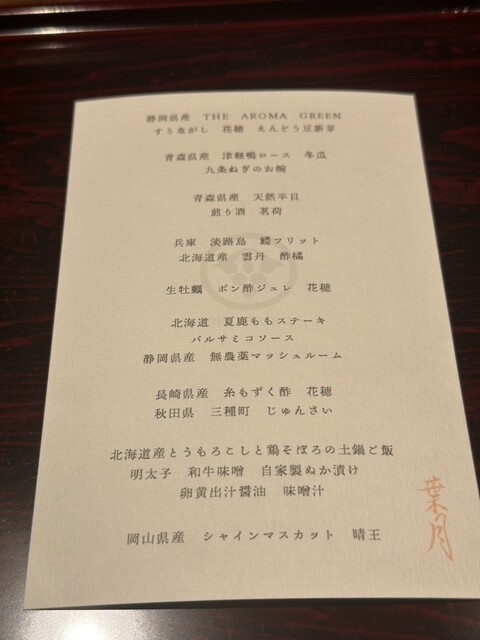 静岡県産　THE　AROMA　GREEN
すりながし　花穂　えんどう豆新芽
青森県産　津軽鴨ロース　冬瓜
九条ねぎのお椀
青森県産　天然平目
煎り酒　茗荷
兵庫　淡路島　鱧フリット
北海道産　雲丹　酢橘
生牡蠣　ポン酢ジュレ　花穂
北海道　夏鹿ももステーキ
バルサミコソース
静岡県産　無農薬マッシュルーム
長崎県産　糸もずく酢　花穂
秋田県　三種町　じゅんさい
北海道産とうもろこしと鶏そぼろの土鍋ご飯
明太子　和牛味噌　自家製ぬか漬け
卵黄出汁醤油　味噌汁
岡山県産　シャインマスカット　晴王
葉月